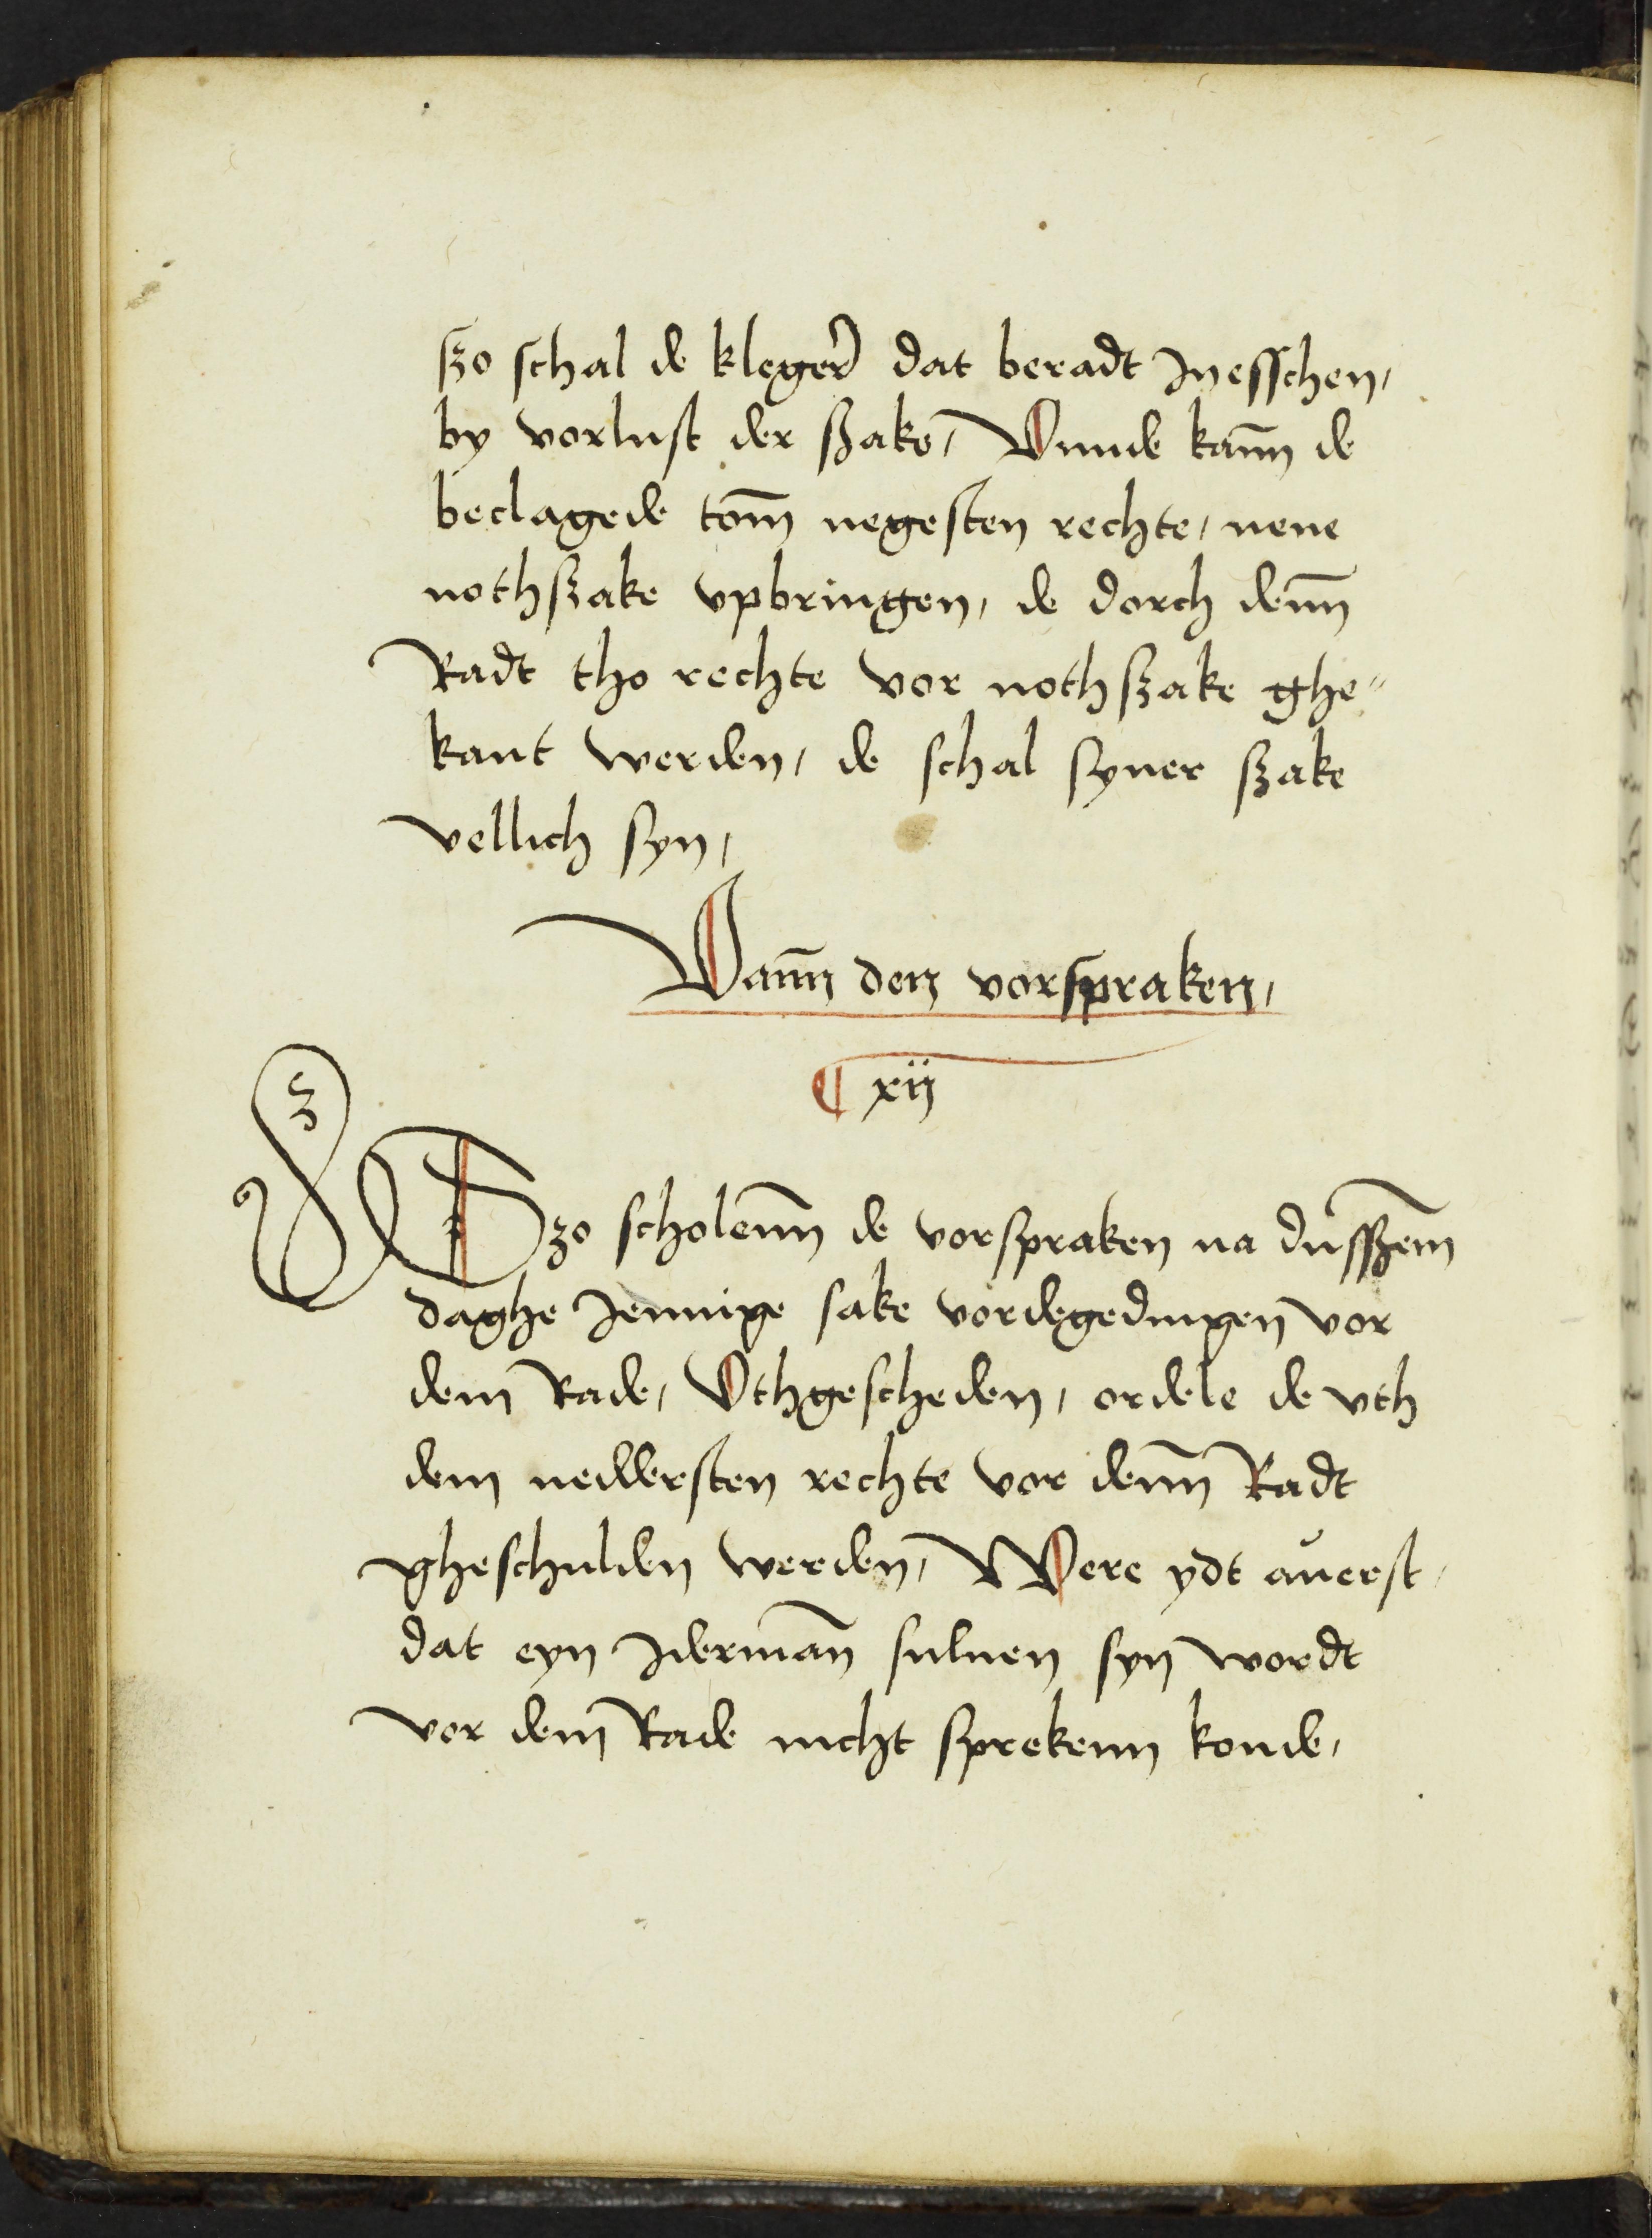 szo schal de klegers dat beradt Inesschen,
by vorlust der szake, Vnnde kan̄n de
beclagede tom̄ negesten rechte, nene
nothszake vpbringen, de dorch den̄n
Radt tho rechte vor nothszake ghe-
kant werden, de schal syner szake
vellich syn,
Van̄n den vorspraken,
¶ xij
Szo scholen̄n de vorspraken na dusszem̄
daghe Jennige sake vordegedingen vor
dem Rade, Vthgescheden, ordele de vth
dem neddersten rechte vor den̄n Radt
gheschulden werden, Were ydt auerst,
dat eyn Iderman̄ suluen syn wordt
vor dem Rade nicht sprekenn konde,